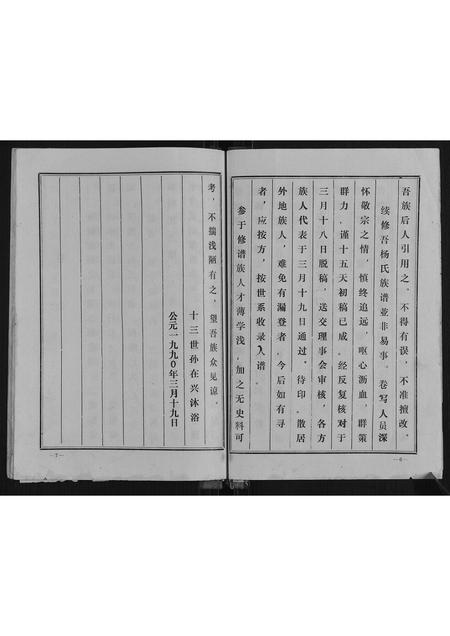 吾族后人引用之。不得有误，不准擅改。
续修吾杨氏族谱並非易事。卷写人员深
怀敬宗之情，慎终追远，呕心沥血，群策
群力，谨十五天初稿已成。经反复核对于
三月十八日脱稿，送交理事会审核，各方
族人代表于三月十九日通过，待印。散居
外地族人，难免有漏登者，今后如有寻
者，应按方，按世系收录入谱。
参于修谱族人才薄学浅，加之无史料可
—6—
考，不揣浅陋有之，望吾族众见谅。
十三世孙在兴沐浴
公元一九九〇年三月十九日
—7—